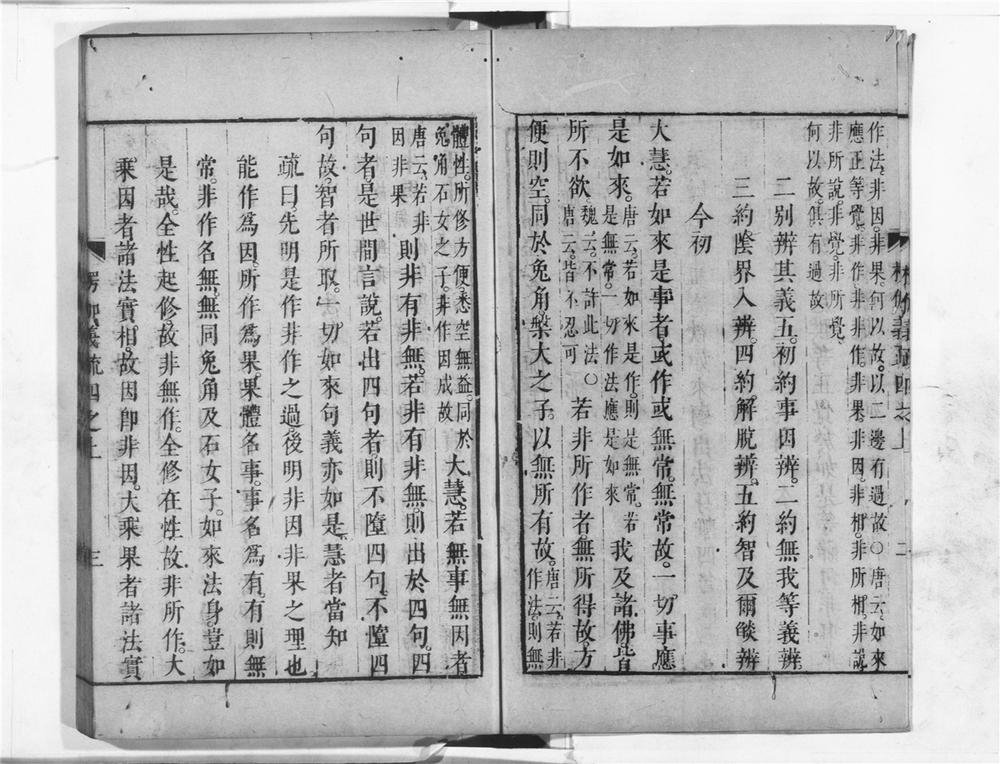 作法非因。非果。何以故。以二邊有過故。○唐云。如來
應正等覺。非作非非作。非果。非因。非相。非所相。非說
非所說。非覺。非所覺。
何以故。俱有過故
二別辨其義五。初約事因辨。二約無我等義辨。
三約陰界入辨。四約解脫辨。五約智及爾燄辨
今初
大慧。若如來是事者。或作或無常。無常故。一切事應
是如來。唐云。若如來是作。則是無常。若是無常。一切作法應是如來我及諸佛皆
所不欲。魏云。不許此法。○唐云。皆不忍可若非所作者。無所得故。方
便則空。同於兔角。槃大之子。以無所有故。唐云。若非作法。則無
體性。所修方便。悉空無益。同於兔角石女之子。非作因成故大慧。若無事無因者。
唐云。若非因非果則非有非無。若非有非無。則出於四句。四
句者。是世間言說。若出四句者。則不墮四句。不墮四
句故。智者所取。一切如來句義亦如是。慧者當知
疏曰。先明是作非作之過。後明非因非果之理也
能作為因。所作為果。果體名事。事名為有。有則無
常。非作名無。無同兔角及石女子。如來法身。豈如
是哉。全性起修。故非無作。全修在性。故非所作。大
乘因者。諸法實相。故因即非因。大乘果者諸法實
楞伽義疏四之上
三
二